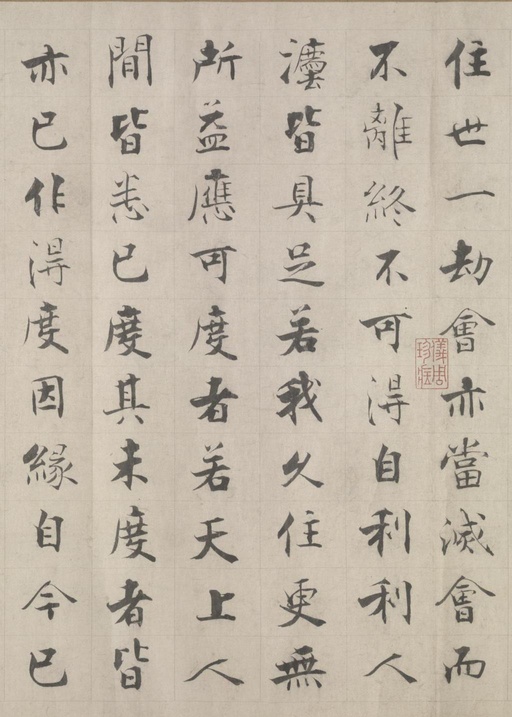 住世一劫會亦當滅會而
不離終不可得自利利人
灋皆具足若我久住更無
所益應可度者若天上人
間皆悉已度其未度者皆
亦已作得度因緣自今已
儀周珍藏